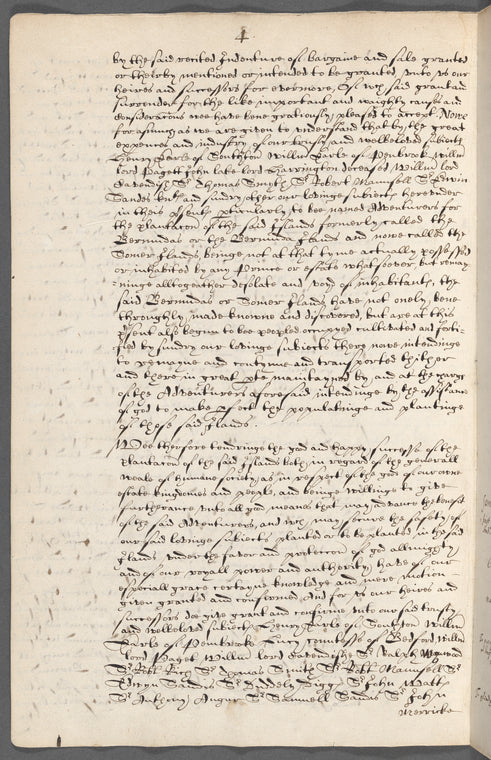 4
by the said recited Indenture of bargaine and sale granted
or thereby mentioned or intended to be granted unto us our
heires and successors for evermore, Of wch said grant and
surrender for the like important and waighty causes and
consideracons wee have bene gratiously pleased to accept. Nowe
for asmuch as we are given to understand that by the great
expences and industry of our trusty and welbeloved subiects
Henry Earle of Southton Willm Earle of Penbrook Willm
lord Pagett John late lord Harrington deceased Willm lord
Cavendish Sr Thomas Smyth Sr Robert Maunsell Sr Edwin
Sandes knt and sundry other our lovinge subiects hereunder
in theis psents pticularly to bee named Adventurers for
the plantacon of the said Islands formerly called the
Bermudas or the Bermuda Ilands and nowe called the
Somer Ilands beinge not at that tyme actually possessed
or inhabited by any Prince or estate whatsoever, but remay-
ninge alltogeather desolate and voyd of inhabitants, the
said Bermudas or Somer Ilands have not onely bene
throughly made knowne and discovered, but are at this
psent also begun to bee peopled occupyed cultivated and forti-
fied by sundry our lovinge subiects there nowe intendinge
to remayne and contynue and transported thither
and there in great pte maintayned by and at the charge
of the Adventurers aforesaid intending by the assistance
of god to make pfect the populatinge and plantinge
of these said Ilands.
Wee therfore tendringe the good and happy successe of the
plantacon of the said Ilands both in regard of the generall
weale of humane society, as in respect of the good of our owne
estate kingdomes and people, and beinge willinge to give
furtherance unto all good meanes that may advance the benefit
of the said Adventurers, and wch may secure the safety of
our said lovinge subiects planted or to be planted in the said
Ilands under the favor and protection of god allmighty
and of our royall power and authority, have of our
especiall grace certayne knowledge and mere motion
given granted and confirmed And for us our heires and
successors doe give grant and confirme unto our said trusty
and welbeloved subiects Henry Earle of Southton Willm
Earle of Penbrooke Lucy countesse of Bedford Willm
lord Paget Willm lord Cavendishe Sr Ralph Winwood
Sr Robt Rich Sr Thomas Smith Sr Robt Maunsell Sr
Edwyn Sandes Sr Duddely Digges Sr John Watts
Sr Anthony Auger Sr Samuell Sandes Sr John
Merricke